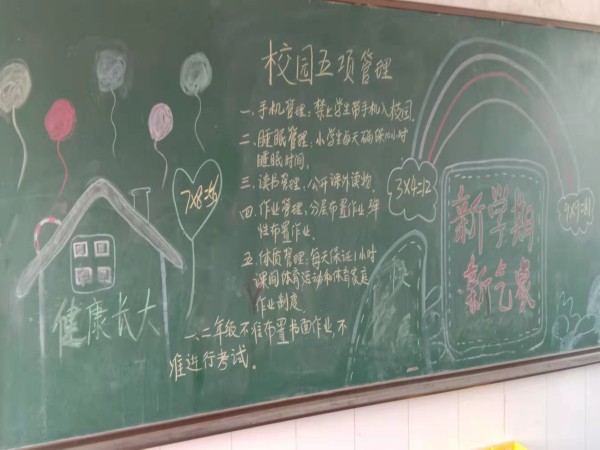 校园五项管理
一、手机管理：禁止学生带手机入校园。
二、睡眠管理：小学生每天确保10小时
睡眠时间。
三、读书管理：公开课外读物。
四、作业管理：分层布置作业弹
性布置作业。
五、体质管理：每天保证1小时
课间体育活动和体育家庭
作业制度
一、二年级不准布置书面作业，不
准进行考试。
7×8=56
健康长大
3×4=12
新学期
新气象
9×9=81